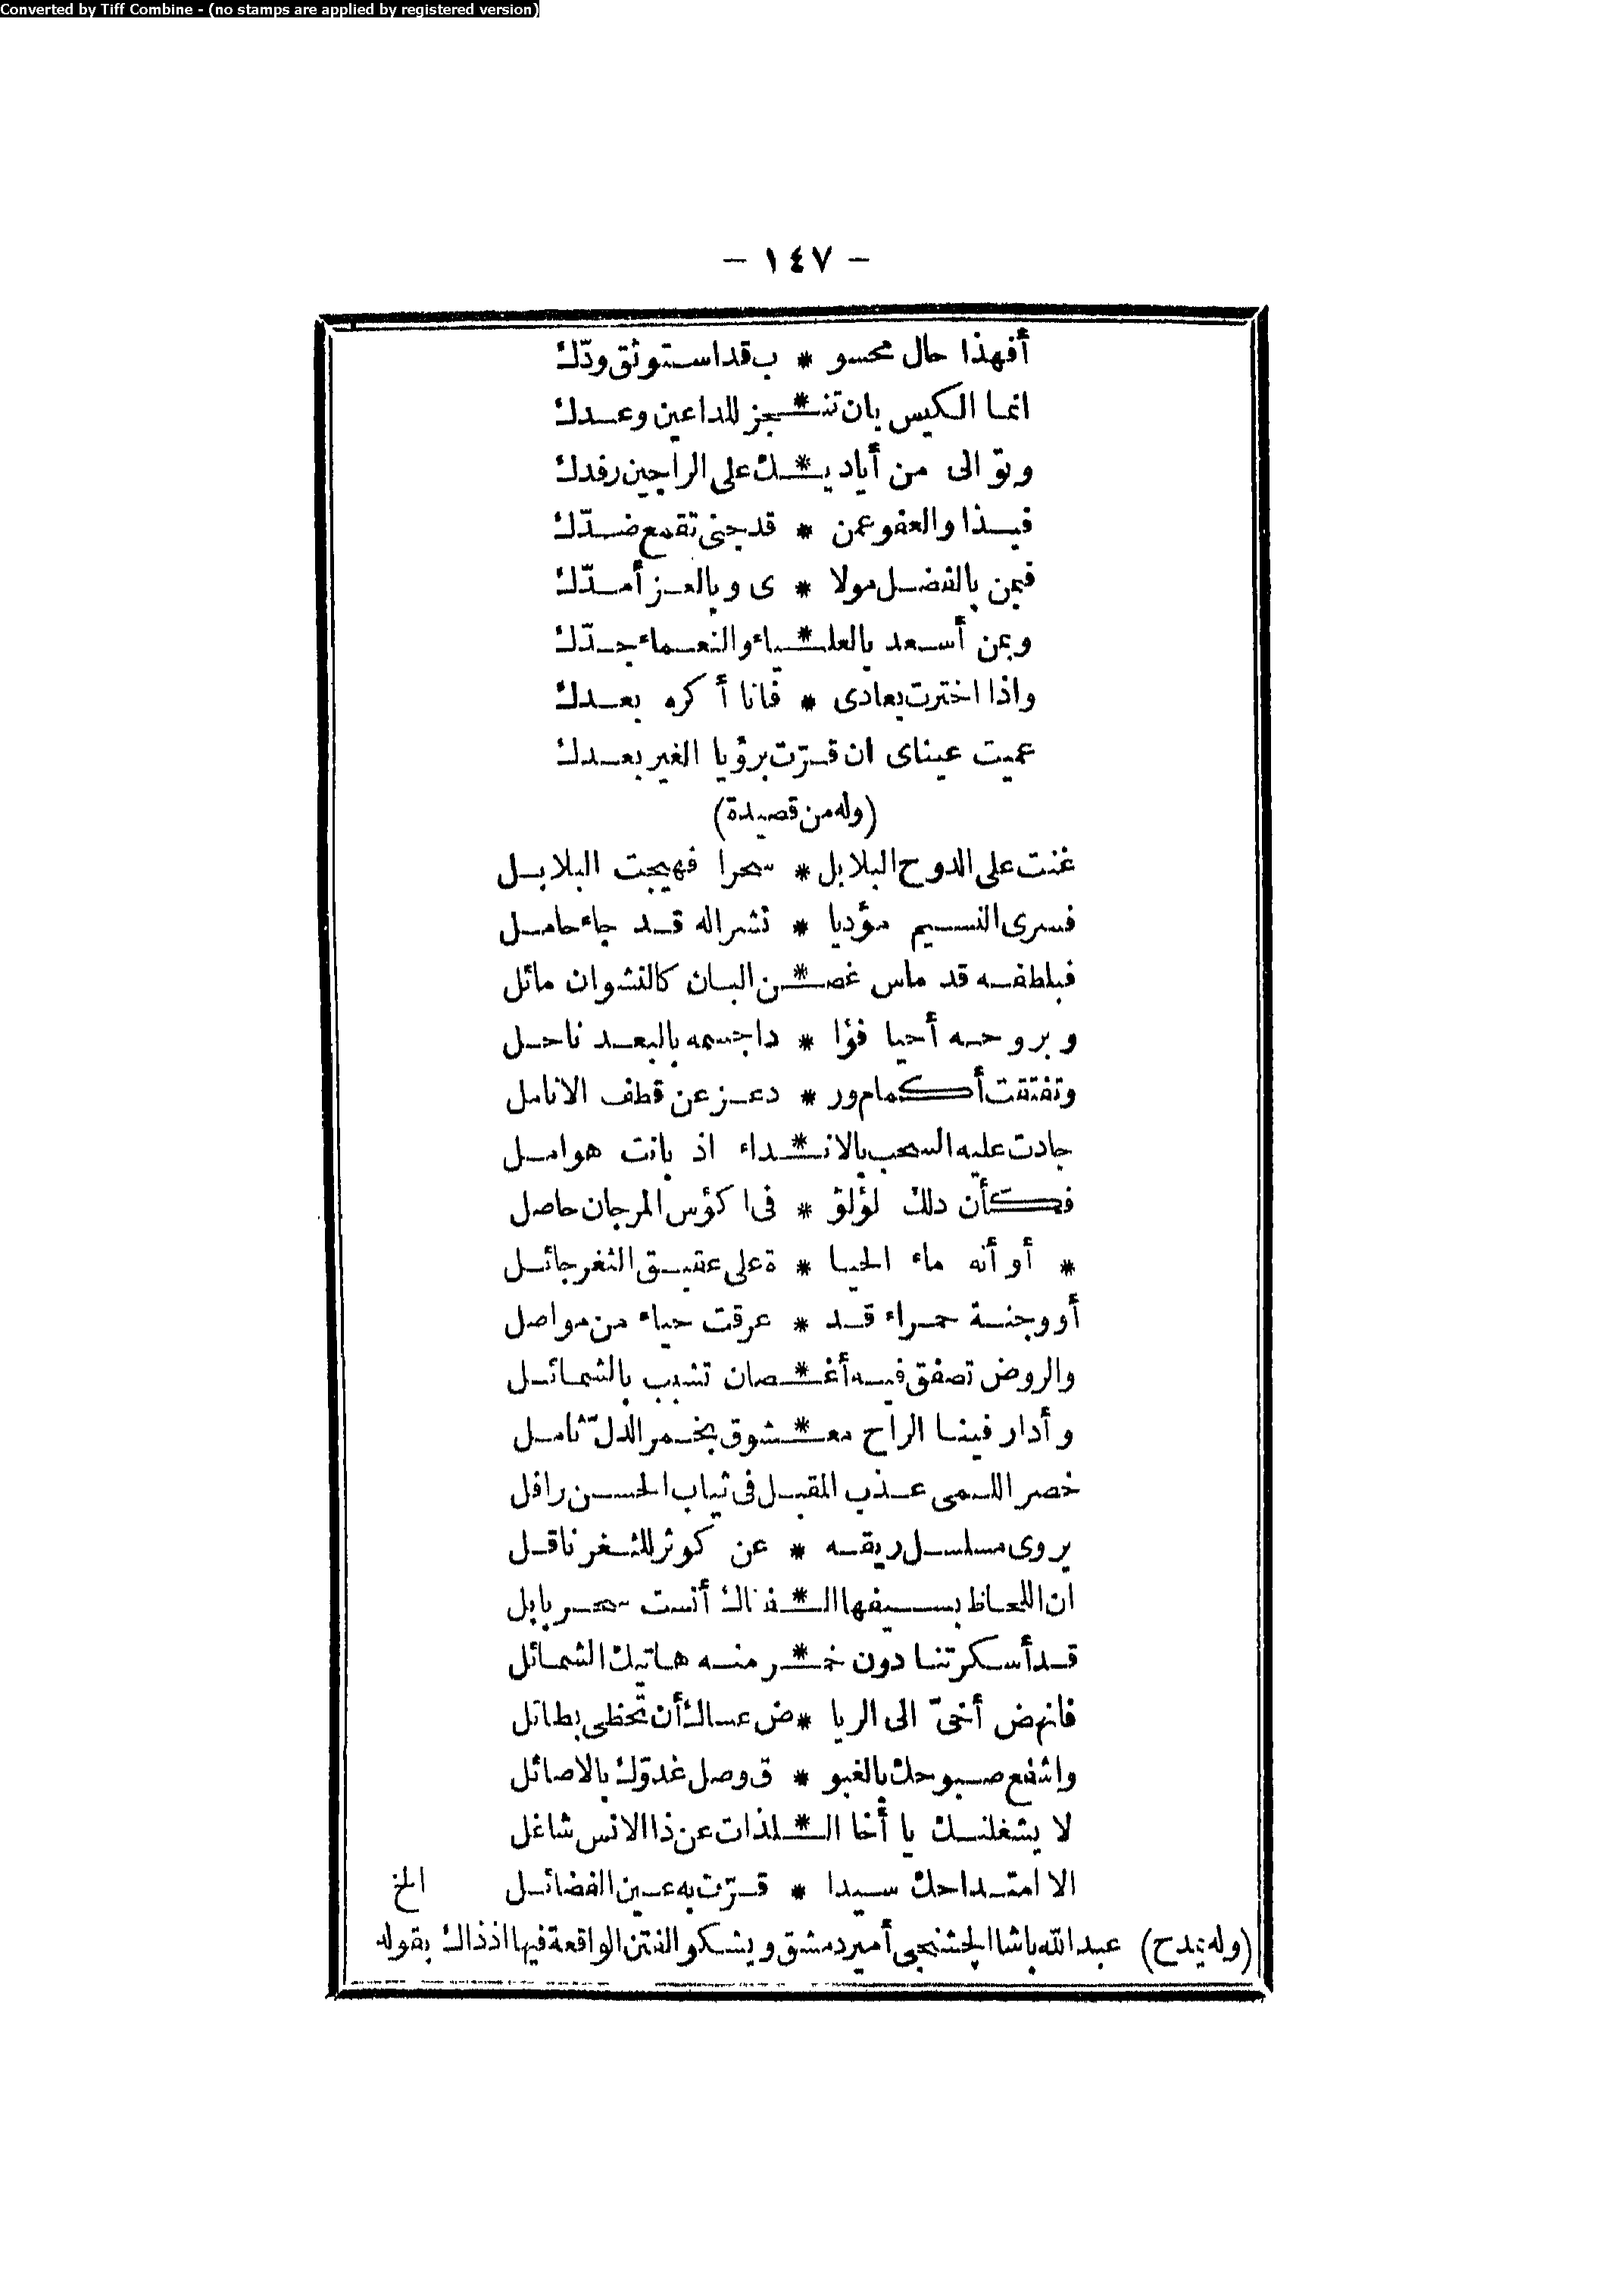 Converted by Tiff Combine - (no stamps are applied by registered version)
- ١٤٧ -
أفهذا حال محسو * ب قد استوثق ودّك
انما الكيس بان تنـ*ـجز للداعين وعدك
وتوالى من أياديـ*ـك على الراجين رفدك
فبذا والعفو عمن * قد جنى تقمع ضدّك
فبمن بالفضل مولا * ى وبالعز أمدّك
وبمن أسعد بالعلـ*ـياء والنعماء جدّك
واذا اخترت بعادى * فانا أكره بعدك
عميت عيناى ان قرّت برؤيا الغير بعدك
(وله من قصيدة)
غنت على الدوح البلابل * سحرا فهيجت البلابل
فسرى النسيم مؤديا * نشرا له قد جاء حامل
فبلطفه قد ماس غصـ*ـن البان كالنشوان مائل
وبروحه أحيا فؤا * دا جسمه بالبعد ناحل
وتفتقت أكمام ور * د عز عن قطف الانامل
جادت عليه السحب بالانـ*ـداء اذ بانت هوامل
فكأن ذلك لؤلؤ * فى اكؤس المرجان حاصل
* أو أنه ماء الحيا * ة على عقيق الثغر جائل
أو وجنة حمراء قد * عرقت حياء من مواصل
والروض تصفق فيه أغـ*ـصان تشبب بالشمائل
وأدار فينا الراح معـ*ـشوق بخمر الدلّ ثامل
خصر اللمى عذب المقبل فى ثياب الحسن رافل
يروى مسلسل ريقه * عن كوثر للثغر ناقل
ان اللحاظ بسيفها الـ*ـفتاك أنست سحر بابل
قد أسكرتنا دون خمـ*ـر منه هاتيك الشمائل
فانهض أخىّ الى الريا * ض عساك أن تحظى بطائل
واشفع صبوحك بالغبو * ق وصل غدوّك بالاصائل
لا يشغلنك يا أخا الـ*ـلذات عن ذا الانس شاغل
الا امتداحك سيدا * قرّت به عين الفضائل الخ
(وله يمدح) عبد الله باشا الجشنجى أمير دمشق ويشكو الفتن الواقعة فيها اذ ذاك بقوله